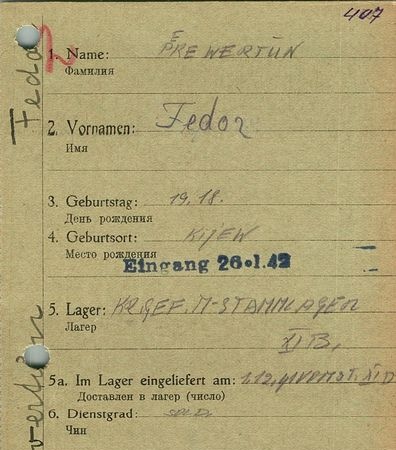 407
1. Name: PREWERTÜN
E
Фамилия
2. Vornamen: Fedor
Имя
3. Geburtstag: 19.18.
День рождения
4. Geburtsort: KIJEW
Место рождения
Eingang 26.1.42
5. Lager: KRGEF. M-STAMMLAGER
Лагер
XI B,
5a. Im Lager eingeliefert am: XI D
Доставлен в лагер (число)
6. Dienstgrad: SOLD.
Чин
Fedor